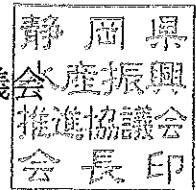 静岡県
産振興
推進協議会
会長印